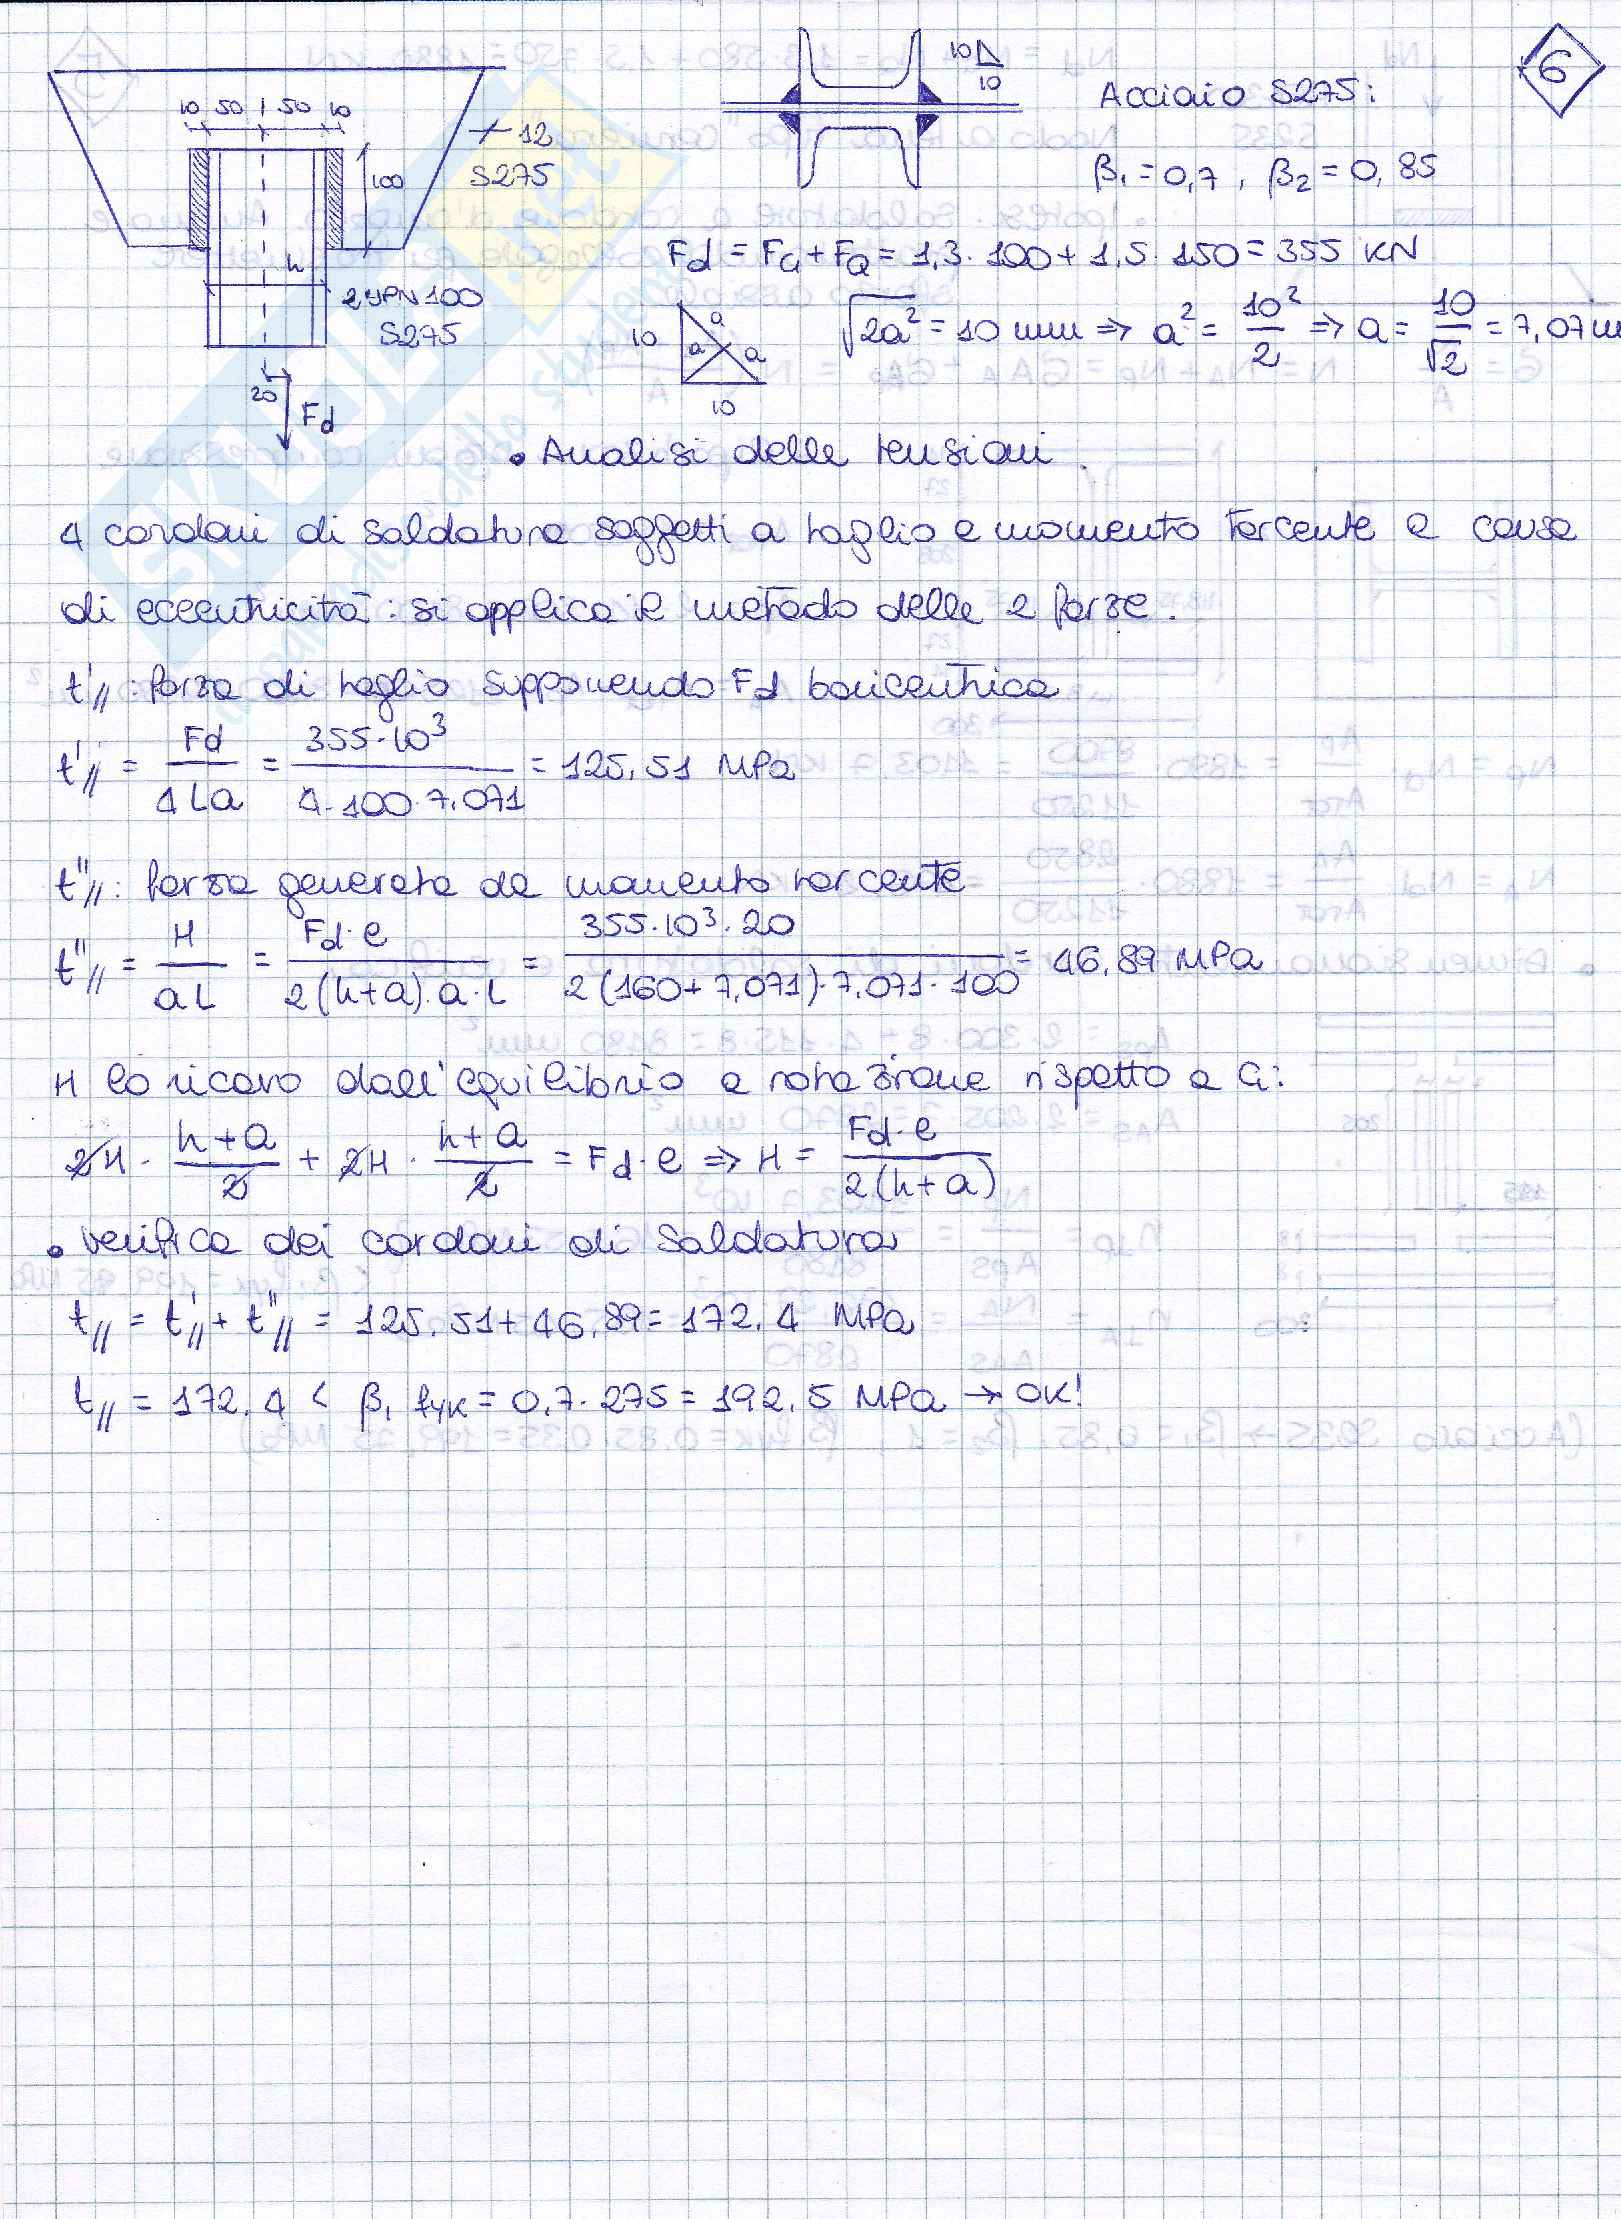 6
10 50 50 10
10
10
Acciaio S275:
12
S275
100
β₁ = 0,7 , β₂ = 0,85
h
2 UPN 100
S275
20
Fd
Fd = FG + FQ = 1,3 · 100 + 1,5 · 150 = 355 KN
10
a
a
a
10
√2a² = 10 mm ⇒ a² = 10²/2 ⇒ a = 10/√2 = 7,07 m
• Analisi delle tensioni
4 cordoni di saldatura soggetti a taglio e momento torcente a causa
di eccentricità: si applica il metodo delle 2 forze.
t'// : forza di taglio supponendo Fd baricentrica
t'// = Fd / 4La = 355·10³ / 4·100·7,071 = 125,51 MPa
t''// : forza generata da momento torcente
t''// = H / aL = Fd·e / 2(h+a)·a·L = 355·10³·20 / 2(160+7,071)·7,071·100 = 46,89 MPa
H lo ricavo dall'equilibrio a rotazione rispetto a G:
2H · (h+a)/2 + 2H · (h+a)/2 = Fd·e ⇒ H = Fd·e / 2(h+a)
• Verifica dei cordoni di saldatura
t// = t'// + t''// = 125,51 + 46,89 = 172,4 MPa
t// = 172,4 < β₁ fyk = 0,7 · 275 = 192,5 MPa → OK!